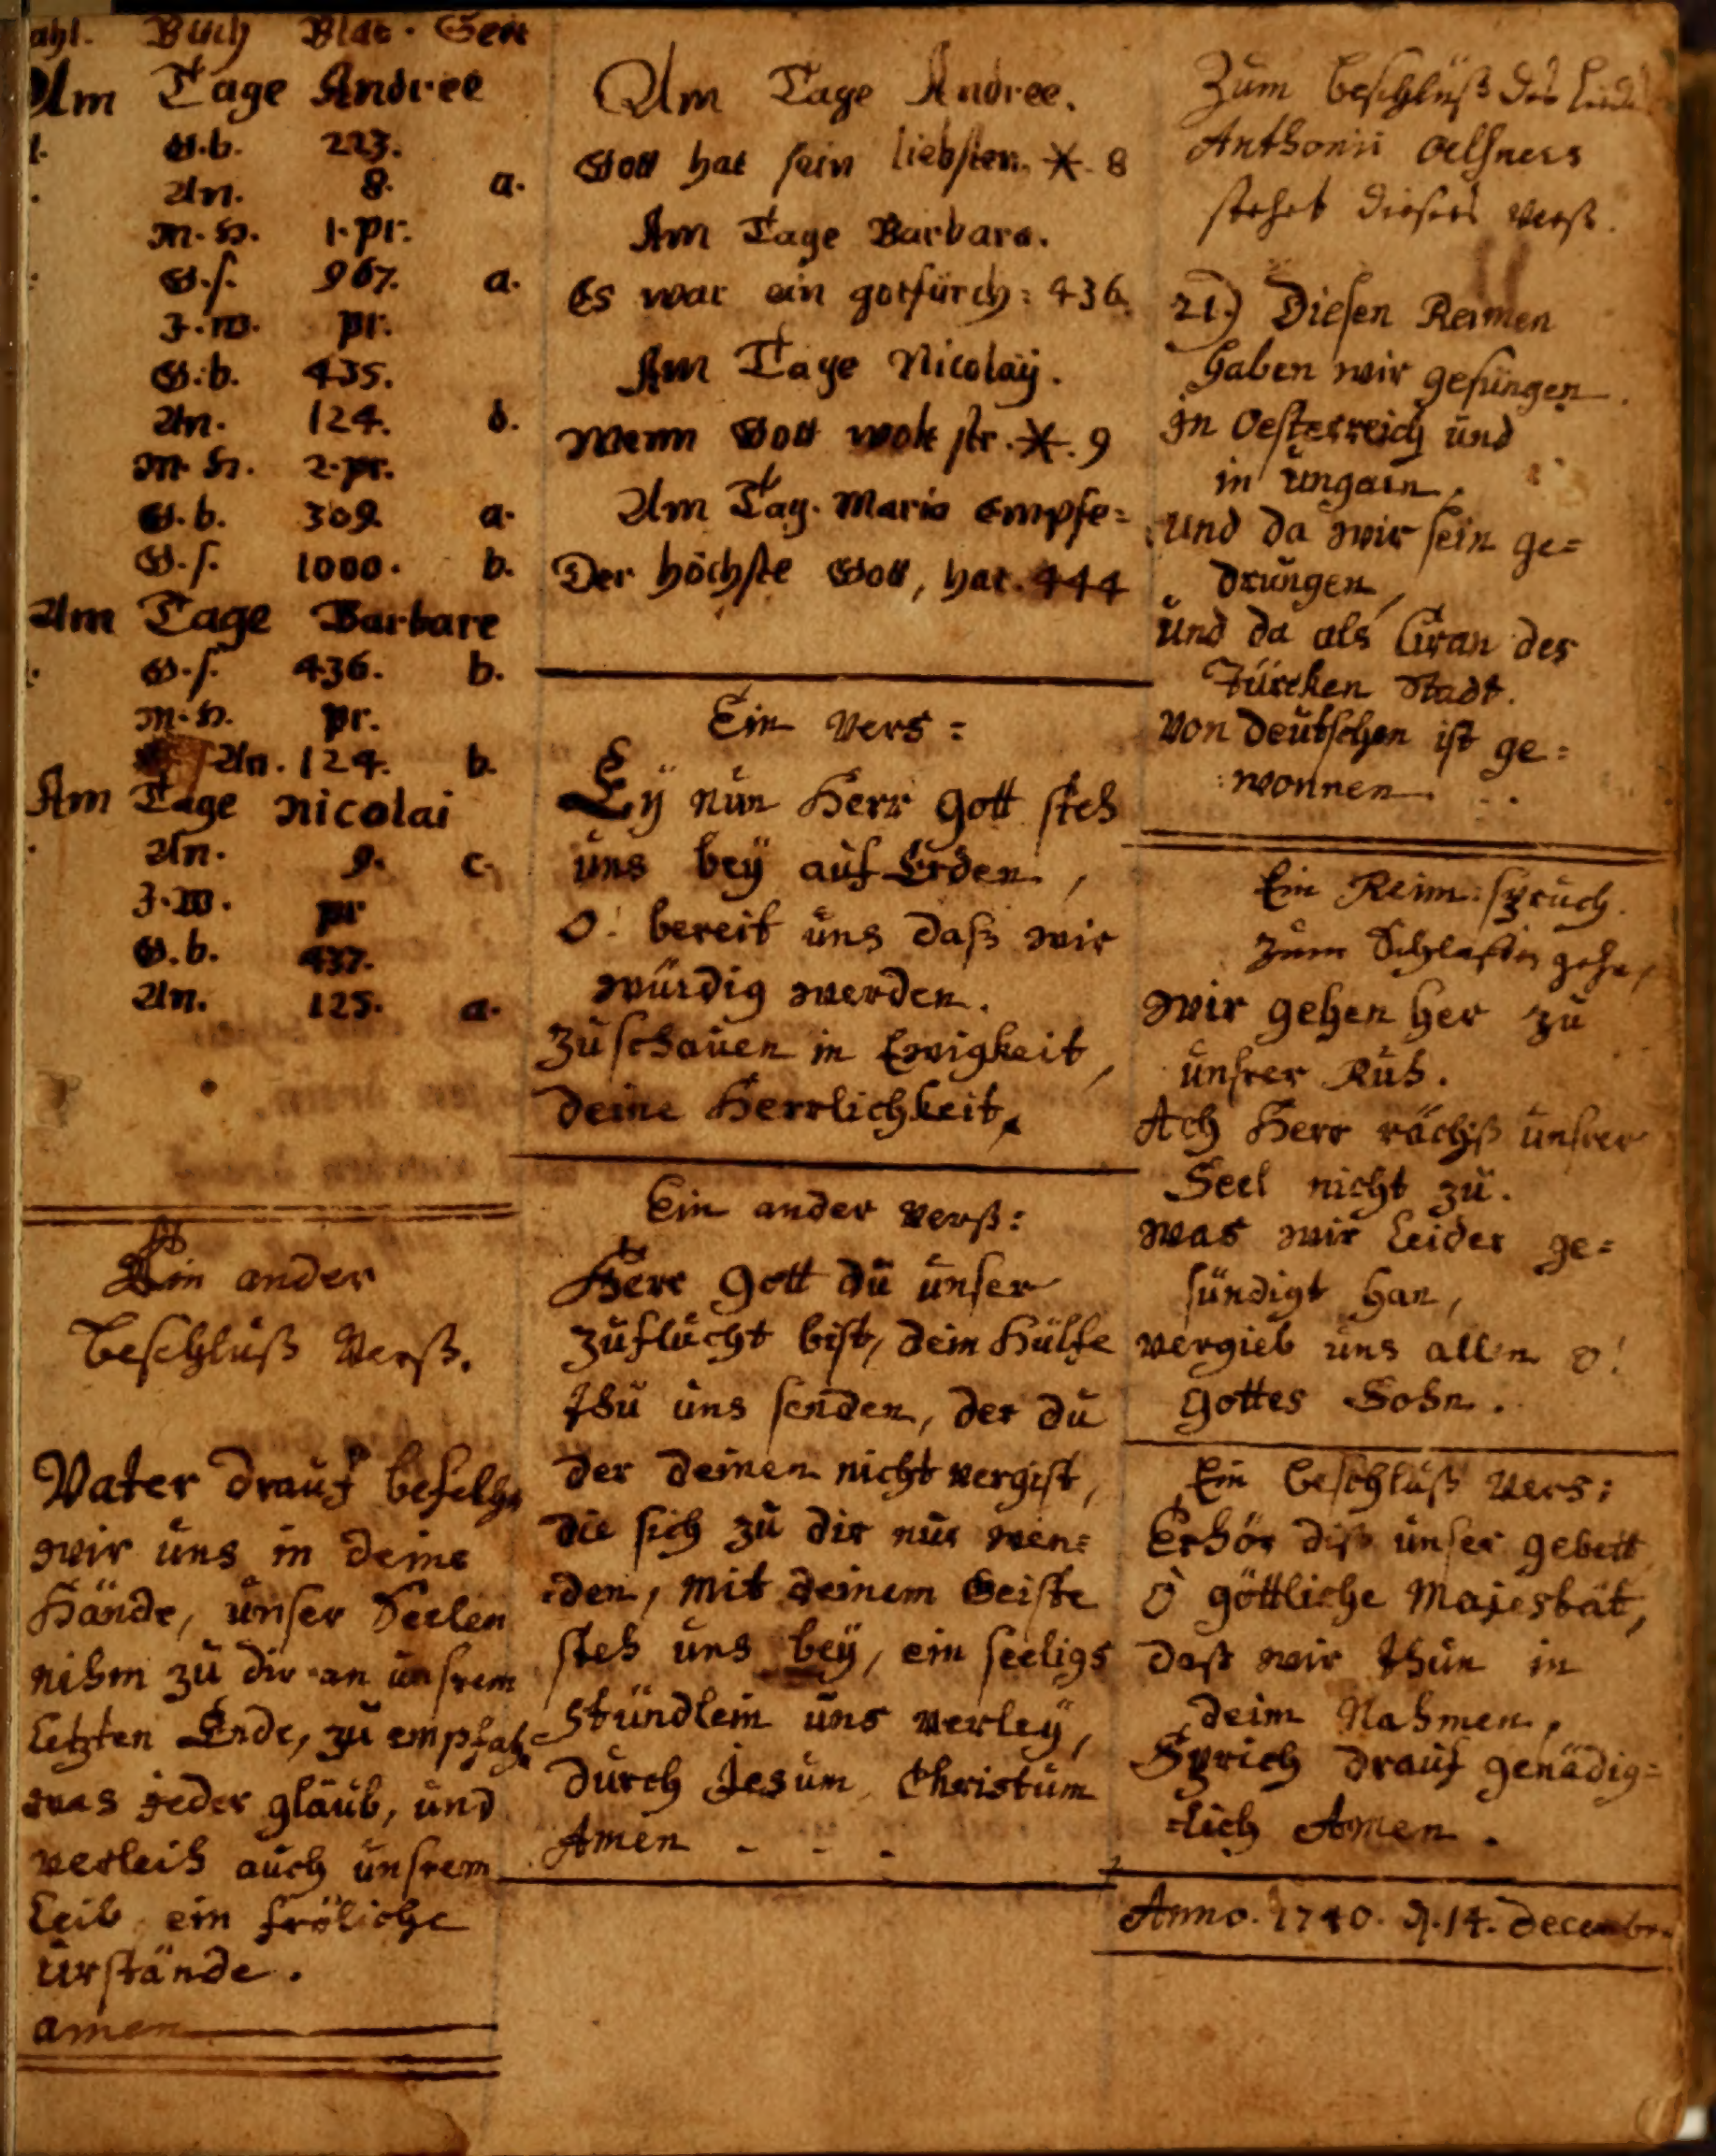 ahl. Buch Blat. Seit
Am Tage Andree
G.b. 223.
An. 8. a.
M.H. 1.pr.
G.s. 967. a.
J.W. pr.
G.b. 435.
An. 124. d.
M.H. 2.pr.
G.b. 309. a.
G.s. 1000. b.
Am Tage Barbare
G.s. 436. b.
M.H. pr.
An. 124. b.
Am Tage Nicolai
An. 9. c.
J.W. pr
G.b. 437.
An. 125. a.
Ein ander
beschluß Verß.
Vater drauf befelhn
wir uns in deine
Hände, unser Seelen
nihm zu dir an unsrem
letzten Ende, zu empfah
was jeder glaub, und
verleih auch unsrem
Leib ein fröliche
urstände.
amen
Am Tage Andree.
Gott hat sein liebsten. *. 8
Am Tage Barbara.
Es war ein gotfürch: 436.
Am Tage Nicolaÿ.
Wenn Gott wolt str. *. 9
Am Tag. Maria Empfe=
Der höchste Gott, hat. 444
Ein Vers:
Eÿ nun Herr Gott steh
uns beÿ auf Erden,
O! bereit uns daß wir
würdig werden.
zuschauen in Ewigkeit,
deine Herrlichkeit.
Ein ander Verß:
Herr Gott du unser
zuflucht bist, dein Hülfe
thu uns senden, der du
der deinen nicht vergist,
die sich zu dir nur wen=
den, mit deinem Geiste
steh uns beÿ, ein seeligs
Stündlein uns verleÿ,
durch Jesum Christum
Amen - - -
Zum beschluß des Lieds
Anthonii Oelsners
stehet dieser Verß.
21.) Diesen Reimen
haben wir gesungen
in Oesterreich und
in ungarn,
und da wir sein ge=
drungen,
und da als Gran der
Türcken Stadt.
von deutschen ist ge=
wonnen.
Ein Reim: spruch.
zum Schlaffen gehn,
wir gehen her zu
unsrer Ruh.
Ach Herr rächß unsrer
Seel nicht zu.
was wir Leider ge=
sündigt han,
vergieb uns allen o!
Gottes Sohn.
Ein beschluß Vers:
Erhör diß unser gebett
O göttliche Majestät,
daß wir thun in
deim Nahmen,
Sprich drauf genädig=
lich Amen.
Anno. 1740. d. 14. Decembr.